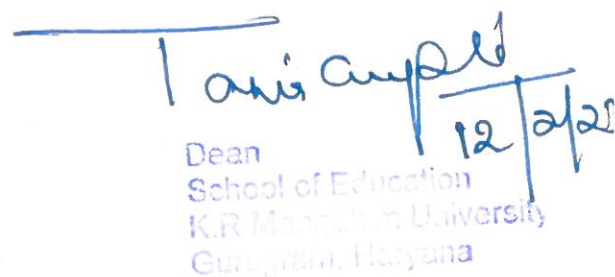 12/2/25
Dean
School of Education
K.R Mangalam University
Gurugram, Haryana